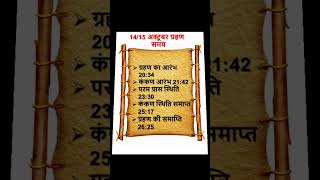 14/15 अक्टूबर ग्रहण
समय
ग्रहण का आरंभ
20:34
कंकण आरंभ 21:42
परम ग्रास स्थिति
23:30
कंकण स्थिति समाप्त
25:17
ग्रहण की समाप्ति
26:25